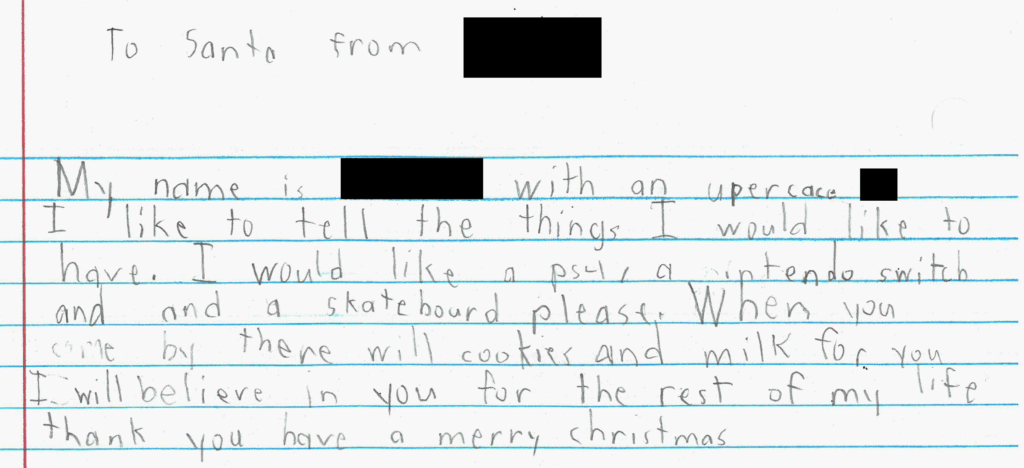 To Santa from
My name is with an upercace
I like to tell the things I would like to
have. I would like a ps4, a nintendo switch
and and a skateboard please. When you
come by there will cookies and milk for you
I will believe in you for the rest of my life
thank you have a merry christmas